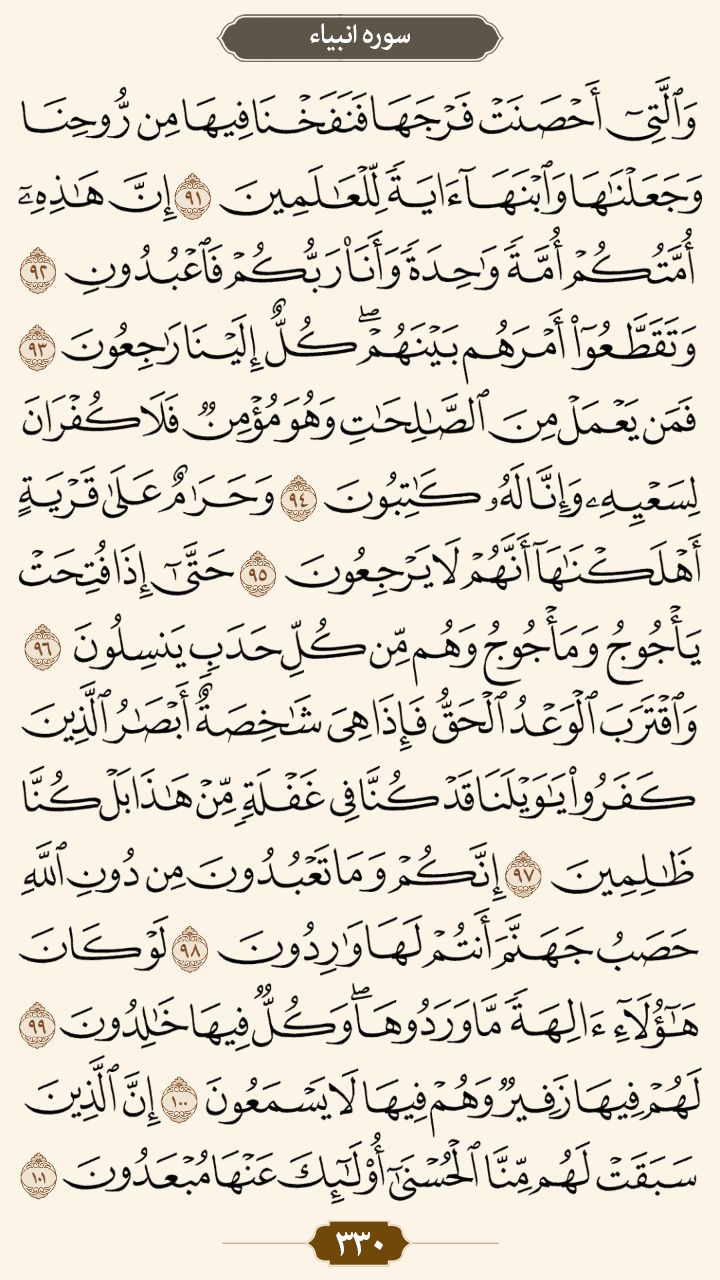 سوره انبیاء
وَٱلَّتِىٓ أَحْصَنَتْ فَرْجَهَا فَنَفَخْنَا فِيهَا مِن رُّوحِنَا
وَجَعَلْنَـٰهَا وَٱبْنَهَآ ءَايَةً لِّلْعَـٰلَمِينَ ٩١ إِنَّ هَـٰذِهِۦٓ
أُمَّتُكُمْ أُمَّةً وَٰحِدَةً وَأَنَا۠ رَبُّكُمْ فَٱعْبُدُونِ ٩٢
وَتَقَطَّعُوٓا۟ أَمْرَهُم بَيْنَهُمْ ۖ كُلٌّ إِلَيْنَا رَٰجِعُونَ ٩٣
فَمَن يَعْمَلْ مِنَ ٱلصَّـٰلِحَـٰتِ وَهُوَ مُؤْمِنٌ فَلَا كُفْرَانَ
لِسَعْيِهِۦ وَإِنَّا لَهُۥ كَـٰتِبُونَ ٩٤ وَحَرَٰمٌ عَلَىٰ قَرْيَةٍ
أَهْلَكْنَـٰهَآ أَنَّهُمْ لَا يَرْجِعُونَ ٩٥ حَتَّىٰٓ إِذَا فُتِحَتْ
يَأْجُوجُ وَمَأْجُوجُ وَهُم مِّن كُلِّ حَدَبٍ يَنسِلُونَ ٩٦
وَٱقْتَرَبَ ٱلْوَعْدُ ٱلْحَقُّ فَإِذَا هِىَ شَـٰخِصَةٌ أَبْصَـٰرُ ٱلَّذِينَ
كَفَرُوا۟ يَـٰوَيْلَنَا قَدْ كُنَّا فِى غَفْلَةٍ مِّنْ هَـٰذَا بَلْ كُنَّا
ظَـٰلِمِينَ ٩٧ إِنَّكُمْ وَمَا تَعْبُدُونَ مِن دُونِ ٱللَّهِ
حَصَبُ جَهَنَّمَ أَنتُمْ لَهَا وَٰرِدُونَ ٩٨ لَوْ كَانَ
هَـٰٓؤُلَآءِ ءَالِهَةً مَّا وَرَدُوهَا ۖ وَكُلٌّ فِيهَا خَـٰلِدُونَ ٩٩
لَهُمْ فِيهَا زَفِيرٌ وَهُمْ فِيهَا لَا يَسْمَعُونَ ١٠٠ إِنَّ ٱلَّذِينَ
سَبَقَتْ لَهُم مِّنَّا ٱلْحُسْنَىٰٓ أُو۟لَـٰٓئِكَ عَنْهَا مُبْعَدُونَ ١٠١
٣٣٠